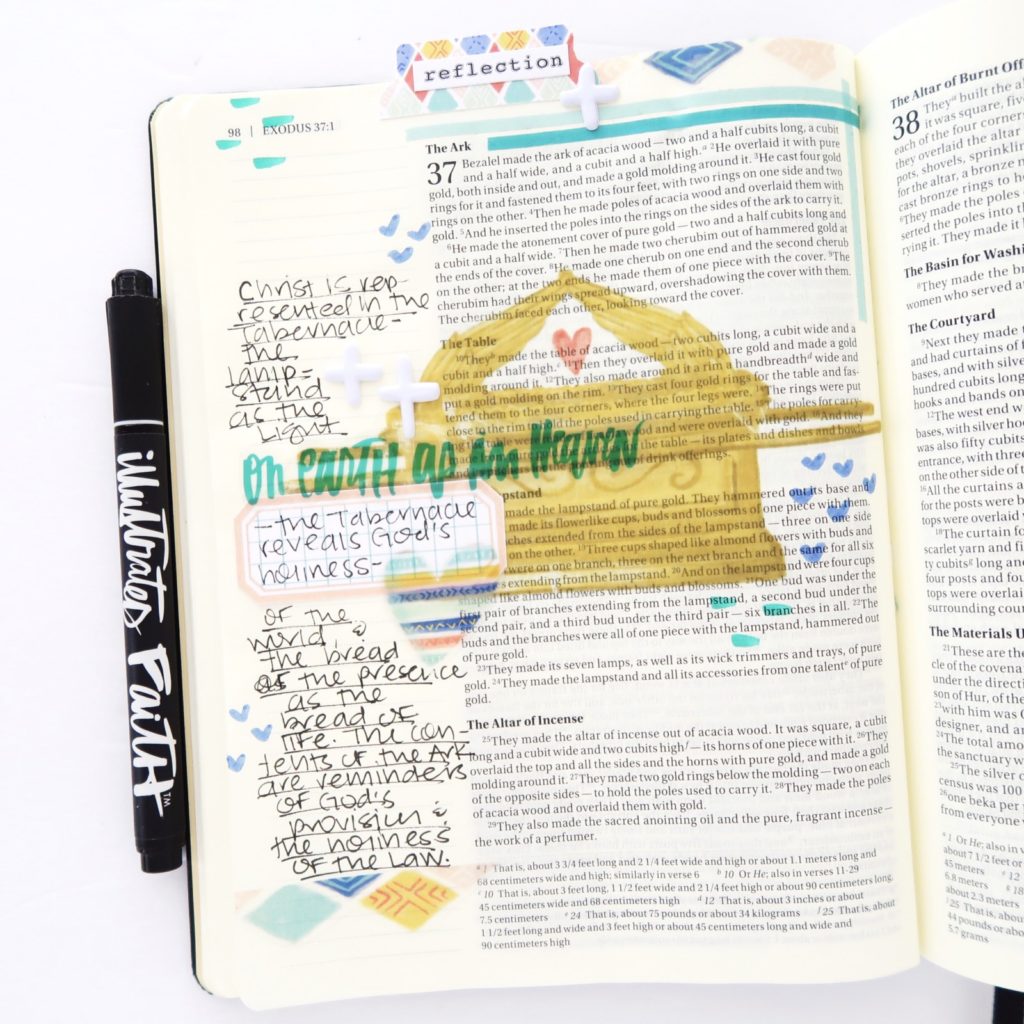 reflection
98 | EXODUS 37:1
The Ark
37 Bezalel made the ark of acacia wood — two and a half cubits long, a cubit
and a half wide, and a cubit and a half high.a 2He overlaid it with pure
gold, both inside and out, and made a gold molding around it. 3He cast four gold
rings for it and fastened them to its four feet, with two rings on one side and two
rings on the other. 4Then he made poles of acacia wood and overlaid them with
gold. 5And he inserted the poles into the rings on the sides of the ark to carry it.
6He made the atonement cover of pure gold — two and a half cubits long and
a cubit and a half wide. 7Then he made two cherubim out of hammered gold at
the ends of the cover. 8He made one cherub on one end and the second cherub
on the other; at the two ends he made them of one piece with the cover. 9The
cherubim had their wings spread upward, overshadowing the cover with them.
The cherubim faced each other, looking toward the cover.
The Table
10Theyb made the table of acacia wood — two cubits long, a cubit wide and a
cubit and a half high.c 11Then they overlaid it with pure gold and made a gold
molding around it. 12They also made around it a rim a handbreadthd wide and
put a gold molding on the rim. 13They cast four gold rings for the table and fas-
tened them to the four corners, where the four legs were. 14The rings were put
close to the rim to hold the poles used in carrying the table. 15The poles for carry-
ing the table were of acacia wood and were overlaid with gold. 16And they
made from pure gold the articles for the table — its plates and dishes and bowls
drink offerings.
pstand
made the lampstand of pure gold. They hammered out its base and
made its flowerlike cups, buds and blossoms of one piece with them.
ches extended from the sides of the lampstand — three on one side
on the other. 19Three cups shaped like almond flowers with buds and
were on one branch, three on the next branch and the same for all six
s extending from the lampstand. 20And on the lampstand were four cups
shaped like almond flowers with buds and blossoms. 21One bud was under the
first pair of branches extending from the lampstand, a second bud under the
second pair, and a third bud under the third pair — six branches in all. 22The
buds and the branches were all of one piece with the lampstand, hammered out
of pure gold.
23They made its seven lamps, as well as its wick trimmers and trays, of pure
gold. 24They made the lampstand and all its accessories from one talente of pure
gold.
The Altar of Incense
25They made the altar of incense out of acacia wood. It was square, a cubit
long and a cubit wide and two cubits highf — its horns of one piece with it. 26They
overlaid the top and all the sides and the horns with pure gold, and made a gold
molding around it. 27They made two gold rings below the molding — two on each
of the opposite sides — to hold the poles used to carry it. 28They made the poles
of acacia wood and overlaid them with gold.
29They also made the sacred anointing oil and the pure, fragrant incense —
the work of a perfumer.
a 1 That is, about 3 3/4 feet long and 2 1/4 feet wide and high or about 1.1 meters long and
68 centimeters wide and high; similarly in verse 6 b 10 Or He; also in verses 11-29
c 10 That is, about 3 feet long, 1 1/2 feet wide and 2 1/4 feet high or about 90 centimeters long,
45 centimeters wide and 68 centimeters high d 12 That is, about 3 inches or about
7.5 centimeters e 24 That is, about 75 pounds or about 34 kilograms f 25 That is, about
1 1/2 feet long and wide and 3 feet high or about 45 centimeters long and wide and
90 centimeters high
Christ is rep-
resented in the
Tabernacle-
the
lamp-
stand
as the
Light
on EARTH as in Heaven
-the Tabernacle
reveals God's
holiness-
of the
world &
the bread
of the presence
as the
bread of
life. The con-
tents of the Ark
are reminders
of God's
provision &
the holiness
of the Law.
illustrated Faith™
The Altar of Burnt Off
38 Theya built the al
it was square, five
each of the four corners
they overlaid the altar
pots, shovels, sprinklin
for the altar, a bronze n
cast bronze rings to ho
6They made the poles
serted the poles into th
rying it. They made it h
The Basin for Washin
8They made the br
women who served at
The Courtyard
9Next they made
and had curtains of f
bases, and with silve
hundred cubits long
hooks and bands on
12The west end w
bases, with silver hoo
was also fifty cubits
entrance, with three
on the other side of t
16All the curtains a
for the posts were b
tops were overlaid
18The curtain fo
scarlet yarn and fi
ty cubitsg long and
four posts and fou
tops were overlai
surrounding cour
The Materials U
21These are the
cle of the covena
under the directi
son of Hur, of the
23with him was O
designer, and an
24The total amo
the sanctuary w
25The silver o
census was 100
26one beka per
from everyone